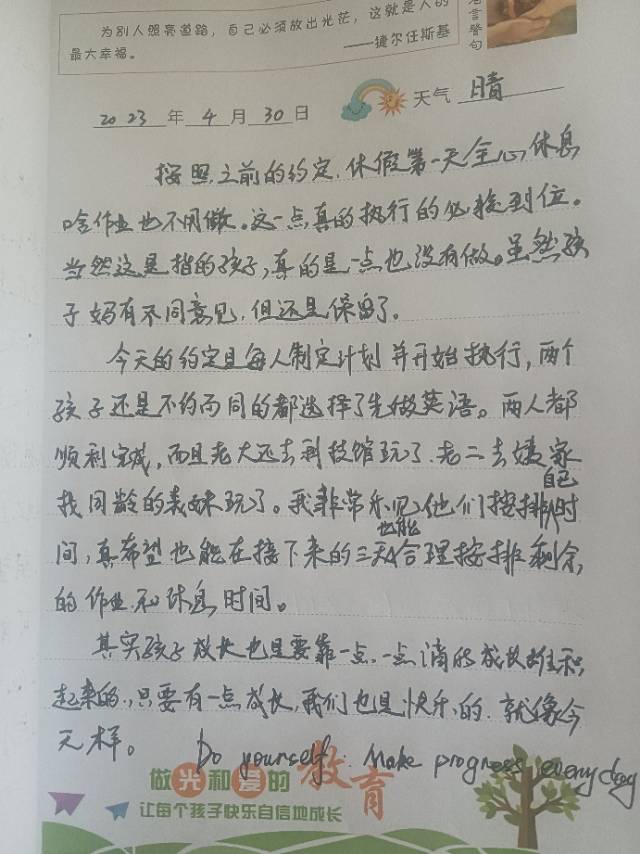 为别人照亮道路，自己必须放出光芒，这就是人的
最大幸福。
——捷尔任斯基
名言警句
2023年4月30日 天气 晴
按照之前的约定，休假第一天全心休息
啥作业也不用做。这一点真的执行的必须到位。
当然这是指的孩子，真的是一点也没有做。虽然孩
子妈有不同意见，但还是保留了。
今天的约定是每人制定计划并开始执行，两个
孩子还是不约而同的都选择了先做英语。两人都
顺利完成，而且老大还去科技馆玩了，老二去姨家
找同龄的表妹玩了。我非常乐见他们按排自己时
间，真希望也能在接下来的三天也能合理按排剩余
的作业和休息时间。
其实孩子成长也是要靠一点，一点滴的成长堆积
起来的，只要有一点成长，我们也是快乐的，就像今
天样。 Do yourself. Make progress every day
做光和爱的教育
让每个孩子快乐自信地成长